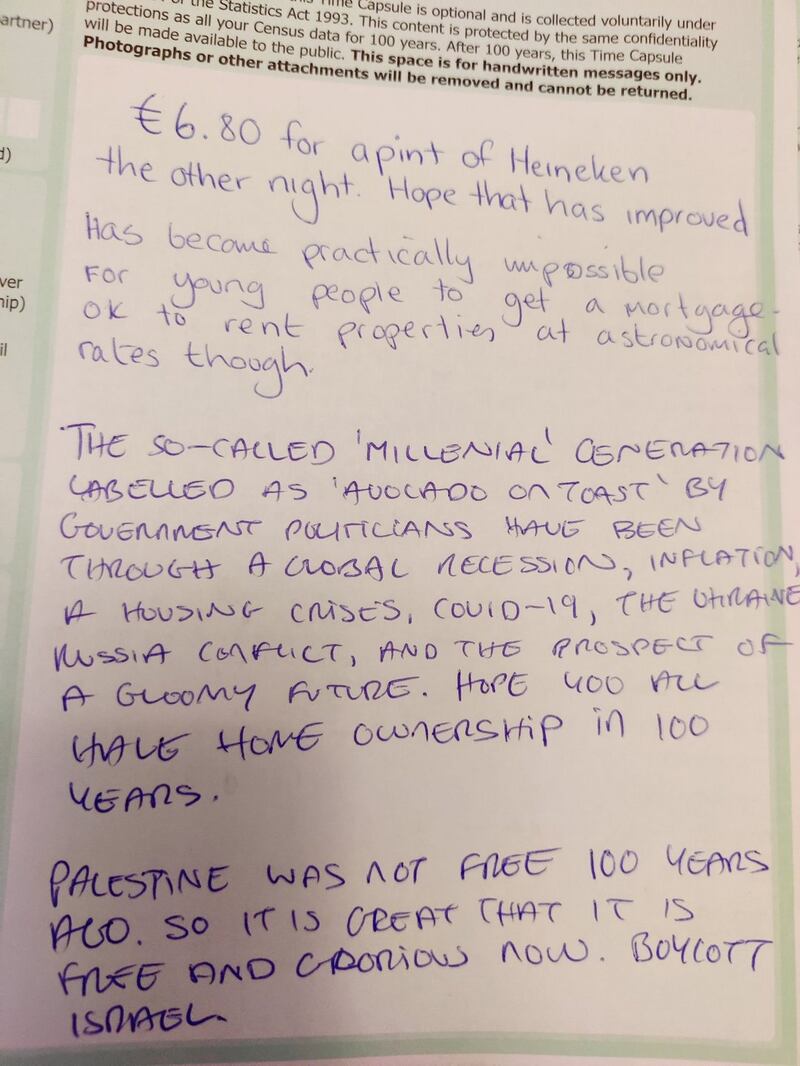 artner)
d)
ver
hip)
il
this Time Capsule is optional and is collected voluntarily under
of the Statistics Act 1993. This content is protected by the same confidentiality
protections as all your Census data for 100 years. After 100 years, this Time Capsule
will be made available to the public. This space is for handwritten messages only.
Photographs or other attachments will be removed and cannot be returned.
€6.80 for a pint of Heineken
the other night. Hope that has improved
Has become practically impossible
For young people to get a mortgage-
OK to rent properties at astronomical
rates though.
THE SO-CALLED 'MILLENIAL' GENERATION
LABELLED AS 'AVOCADO ON TOAST' BY
GOVERNMENT POLITICIANS HAVE BEEN
THROUGH A GLOBAL RECESSION, INFLATION,
A HOUSING CRISES, COVID-19, THE UKRAINE
RUSSIA CONFLICT, AND THE PROSPECT OF
A GLOOMY FUTURE. HOPE YOU ALL
HAVE HOME OWNERSHIP IN 100
YEARS.
PALESTINE WAS NOT FREE 100 YEARS
AGO. SO IT IS GREAT THAT IT IS
FREE AND GLORIOUS NOW. BOYCOTT
ISRAEL.